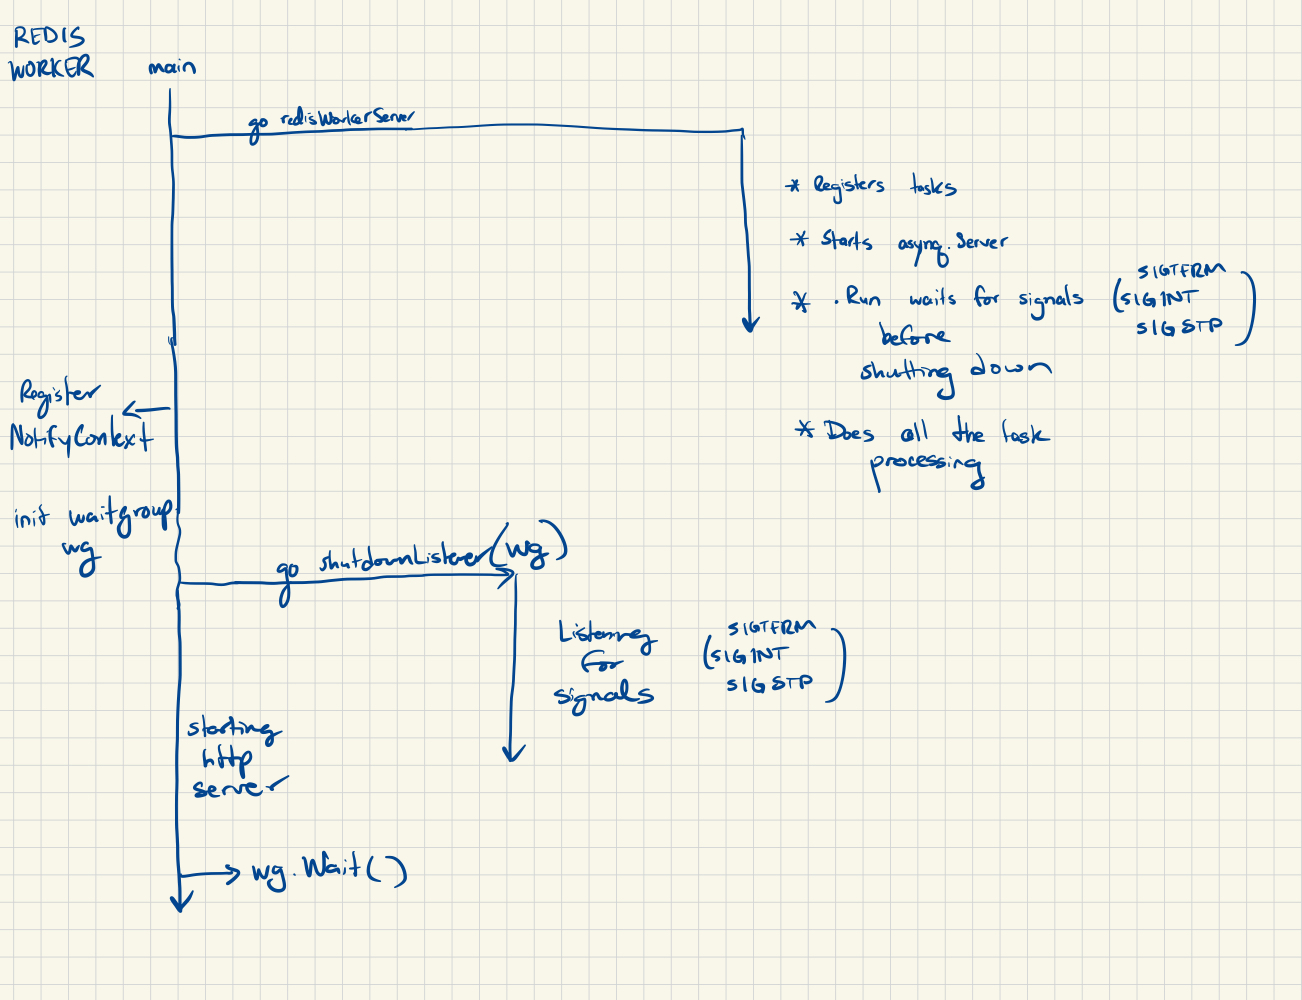 REDIS
WORKER
main
go redisWorkerServer
* Registers tasks
* Starts asynq.Server
* .Run waits for signals (SIGTERM
SIGINT
SIGSTP)
before
shutting down
* Does all the task
processing
Register
NotifyContext
init waitgroup
wg
go shutdownListener(wg)
Listening
for
signals
(SIGTERM
SIGINT
SIGSTP)
starting
http
server
wg.Wait()